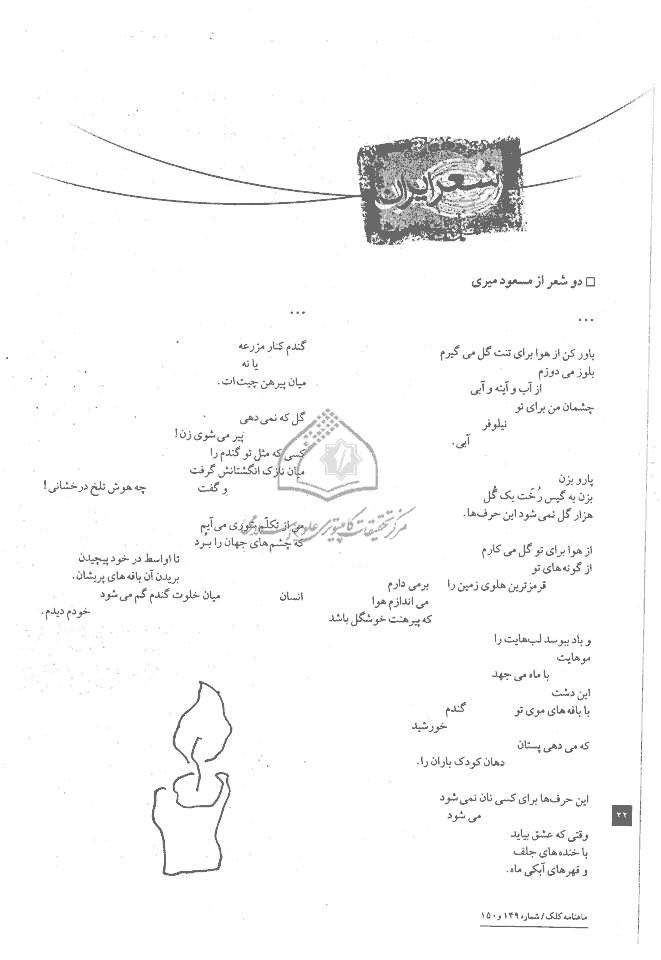 شعر ایران
دو شعر از مسعود میری
...
باور کن از هوا برای تنت گل می گیرم
بلوز می دوزم
از آب و آینه و آبی
چشمان من برای تو
نیلوفر
آبی.
پارو بزن
بزن به گیس رُخَت یک گُل
هزار گل نمی شود این حرف‌ها.
از هوا برای تو گل می کارم
از گونه های تو
قرمزترین هلوی زمین را برمی دارم
می اندازم هوا
که پیرهنت خوشگل باشد
و باد ببوسد لب‌هایت را
موهایت
با ماه می جهد
این دشت
با بافه های موی تو گندم
خورشید
که می دهی پستان
دهان کودک باران را.
این حرف‌ها برای کسی نان نمی شود
می شود
وقتی که عشق بیاید
با خنده های جلف
و قهرهای آبکی ماه.
...
گندم کنار مزرعه
یا نه
میان پیرهن چیت‌ات.
گل که نمی دهی
پیر می شوی زن!
کسی که مثل تو گندم را
میان نازک انگشتانش گرفت
و گفت چه هوش تلخ درخشانی!
من از تکلّم شوری می آیم
که چشم های جهان را بُرد
تا اواسط در خود پیچیدن
بریدن آن بافه های پریشان.
انسان میان خلوت گندم گم می شود
خودم دیدم.
مرکز تحقیقات کامپیوتری علوم اسلامی
۲۲
ماهنامه کلک / شماره ۱۴۹ و ۱۵۰